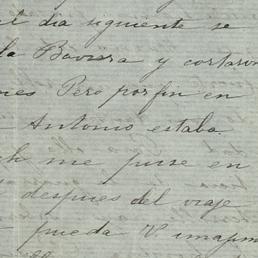 al dia siguiente se
la Baviera y cortaron
nes Pero por fin en
Antonio estaba
me puse en
despues del viaje
pueda V. imagin